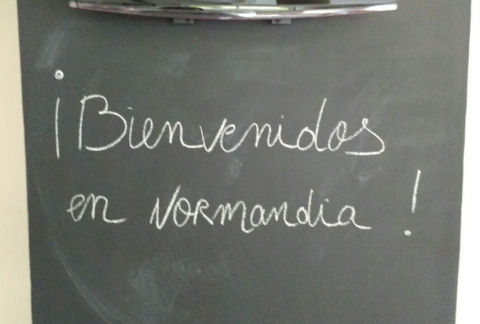 ¡Bienvenidos
en Normandia !